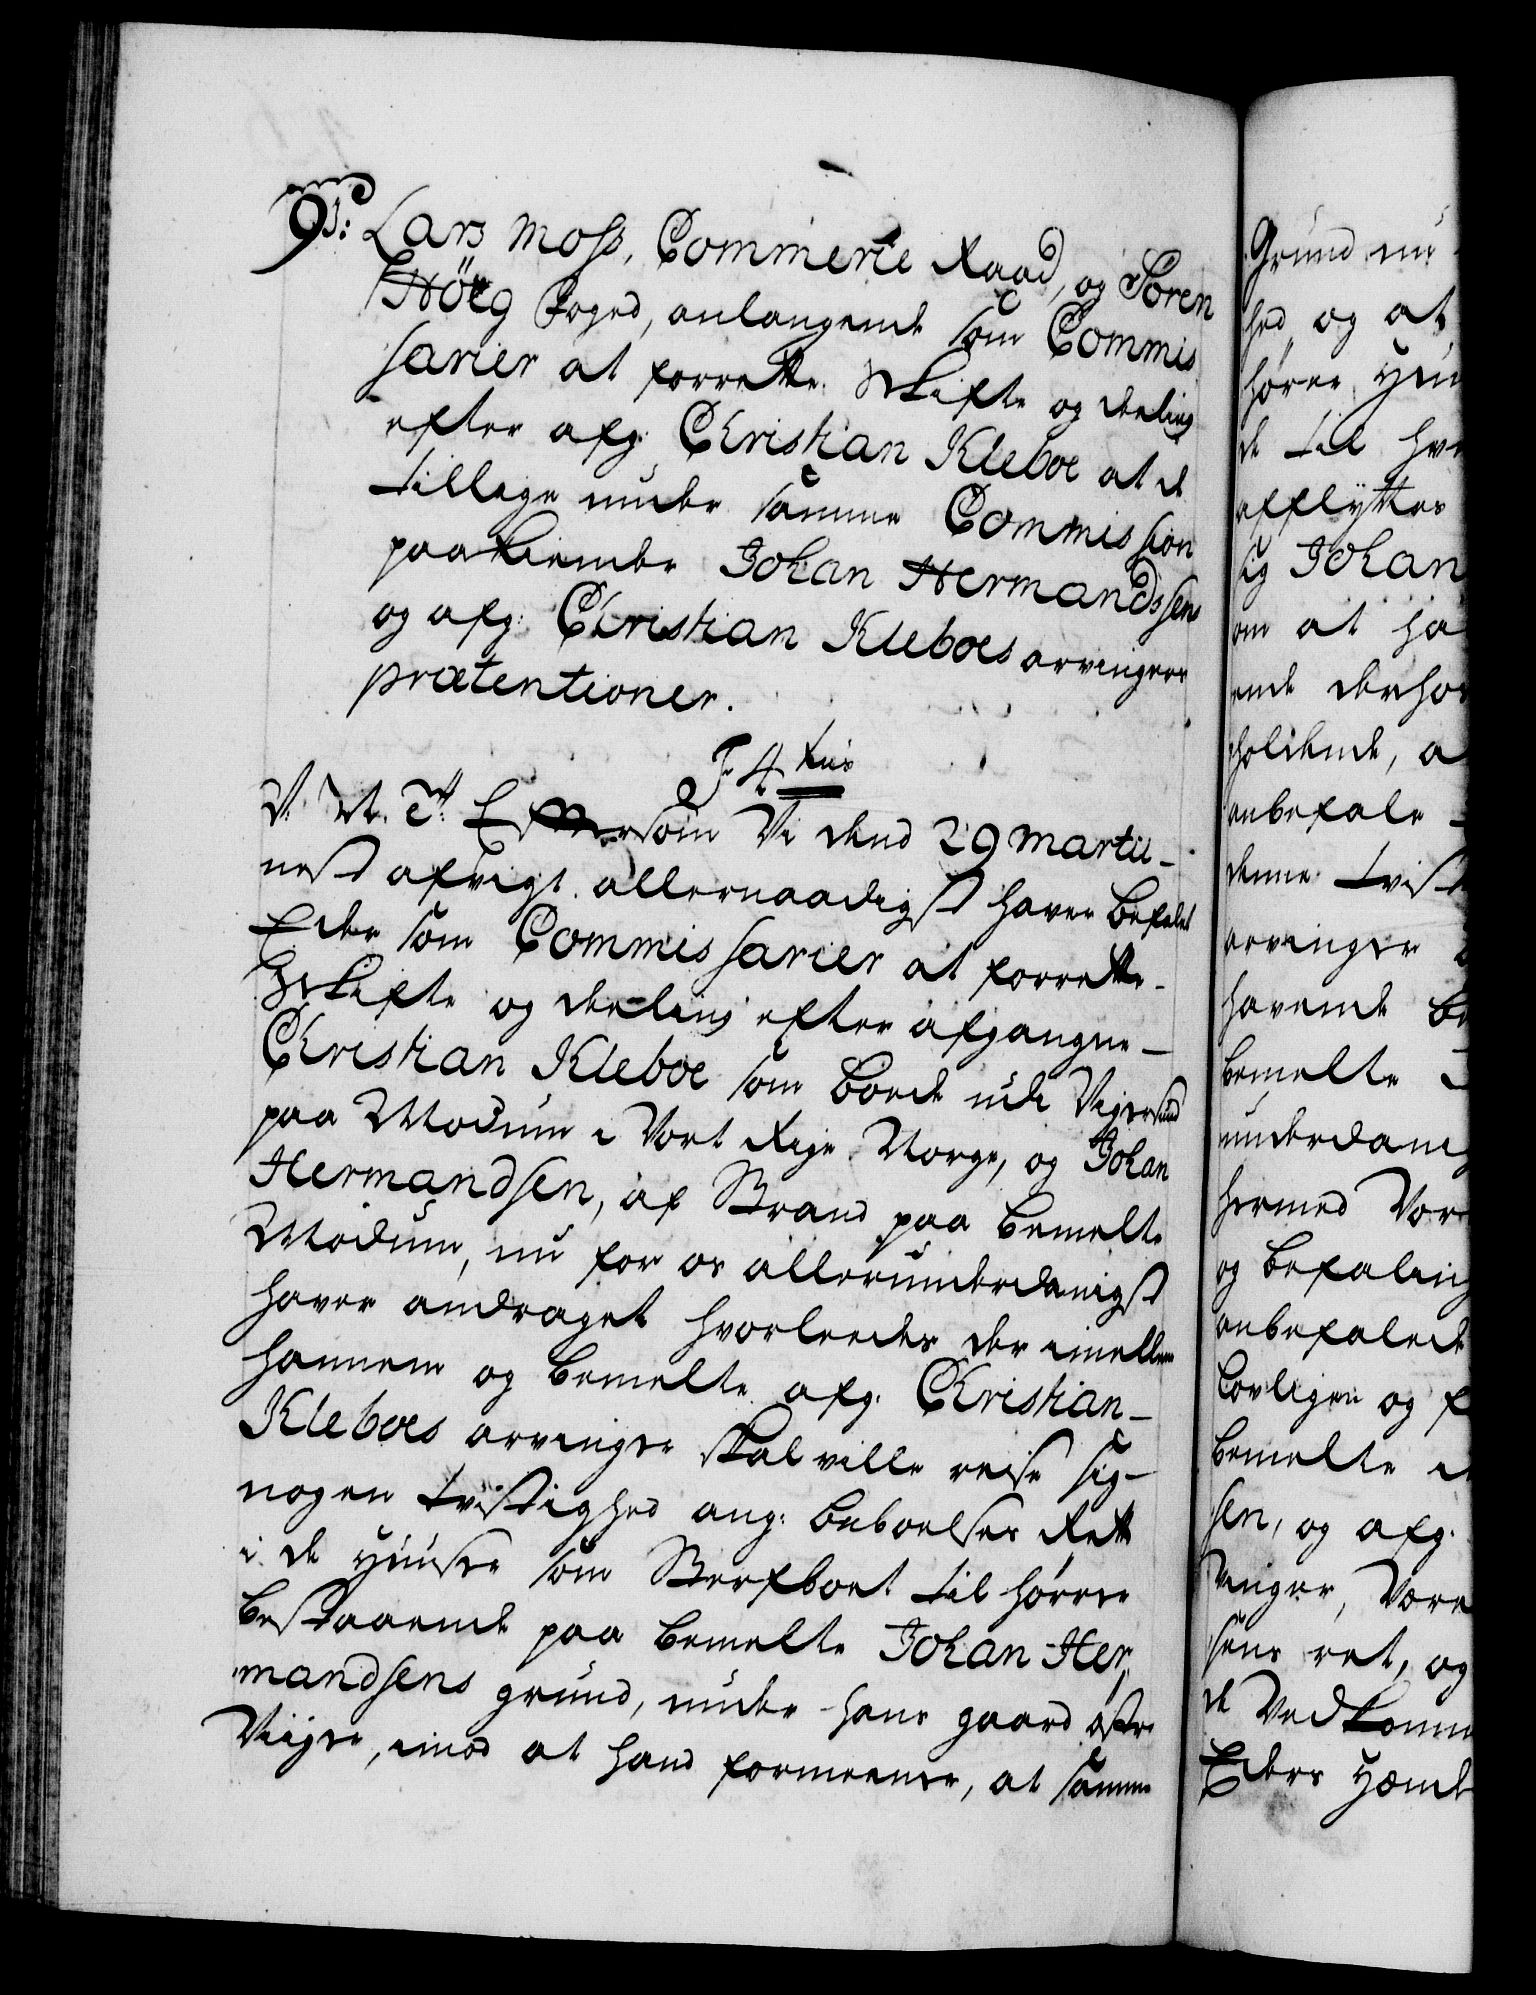 93: Lars Moss, Commerce Raad, og Sören
Höeg Foged, anlangende som Commis
sarier at forrette Skifte og deeling
efter afg: Christian Kleboe at de
tillige under samme Commission
paakiender Johan Hermandssens
og afg: Christian Kleboes arvingers
prætentioner.
F 4 Rus
V. W. G. Eftersom Vi dend 29 Martii
nest afvigt allernaadigst haver befalet
Eder som Commissarier at forrette
Skifte og deeling efter afgangne
Christian Kleboe som boede udi Vigersund
paa Modum i Vort Rige Norge, og Johan
Hermandsen, af Strand paa bemelte
Modum, nu for os allerunderdanigst
haver andraget hvorledes der imellem
hannem og bemelte afg: Christian
Kleboes arvinger skal ville reise sig
nogen tvistighed ang: beboelses Rett
i de Huuse som Sterfboet til hörer
bestaaende paa bemelte Johan Her,
mandsens grund, under hans gaard östre
Viiger, imod at hand formeener, at samme
Grund nu
hed, og at
hörer Huu
de til hve
afflyttes
sig Johan
om at ha
ende derhos
holdende, a
anbefale
denne tvist
arvinger
havende be
bemelte
underdanig
hermed Vor
og befaling
anbefalede
lovligen og f
bemelte
sen, og afg.
vinger, Være
sens ret, og
de Vedkomm
Eders Hænde